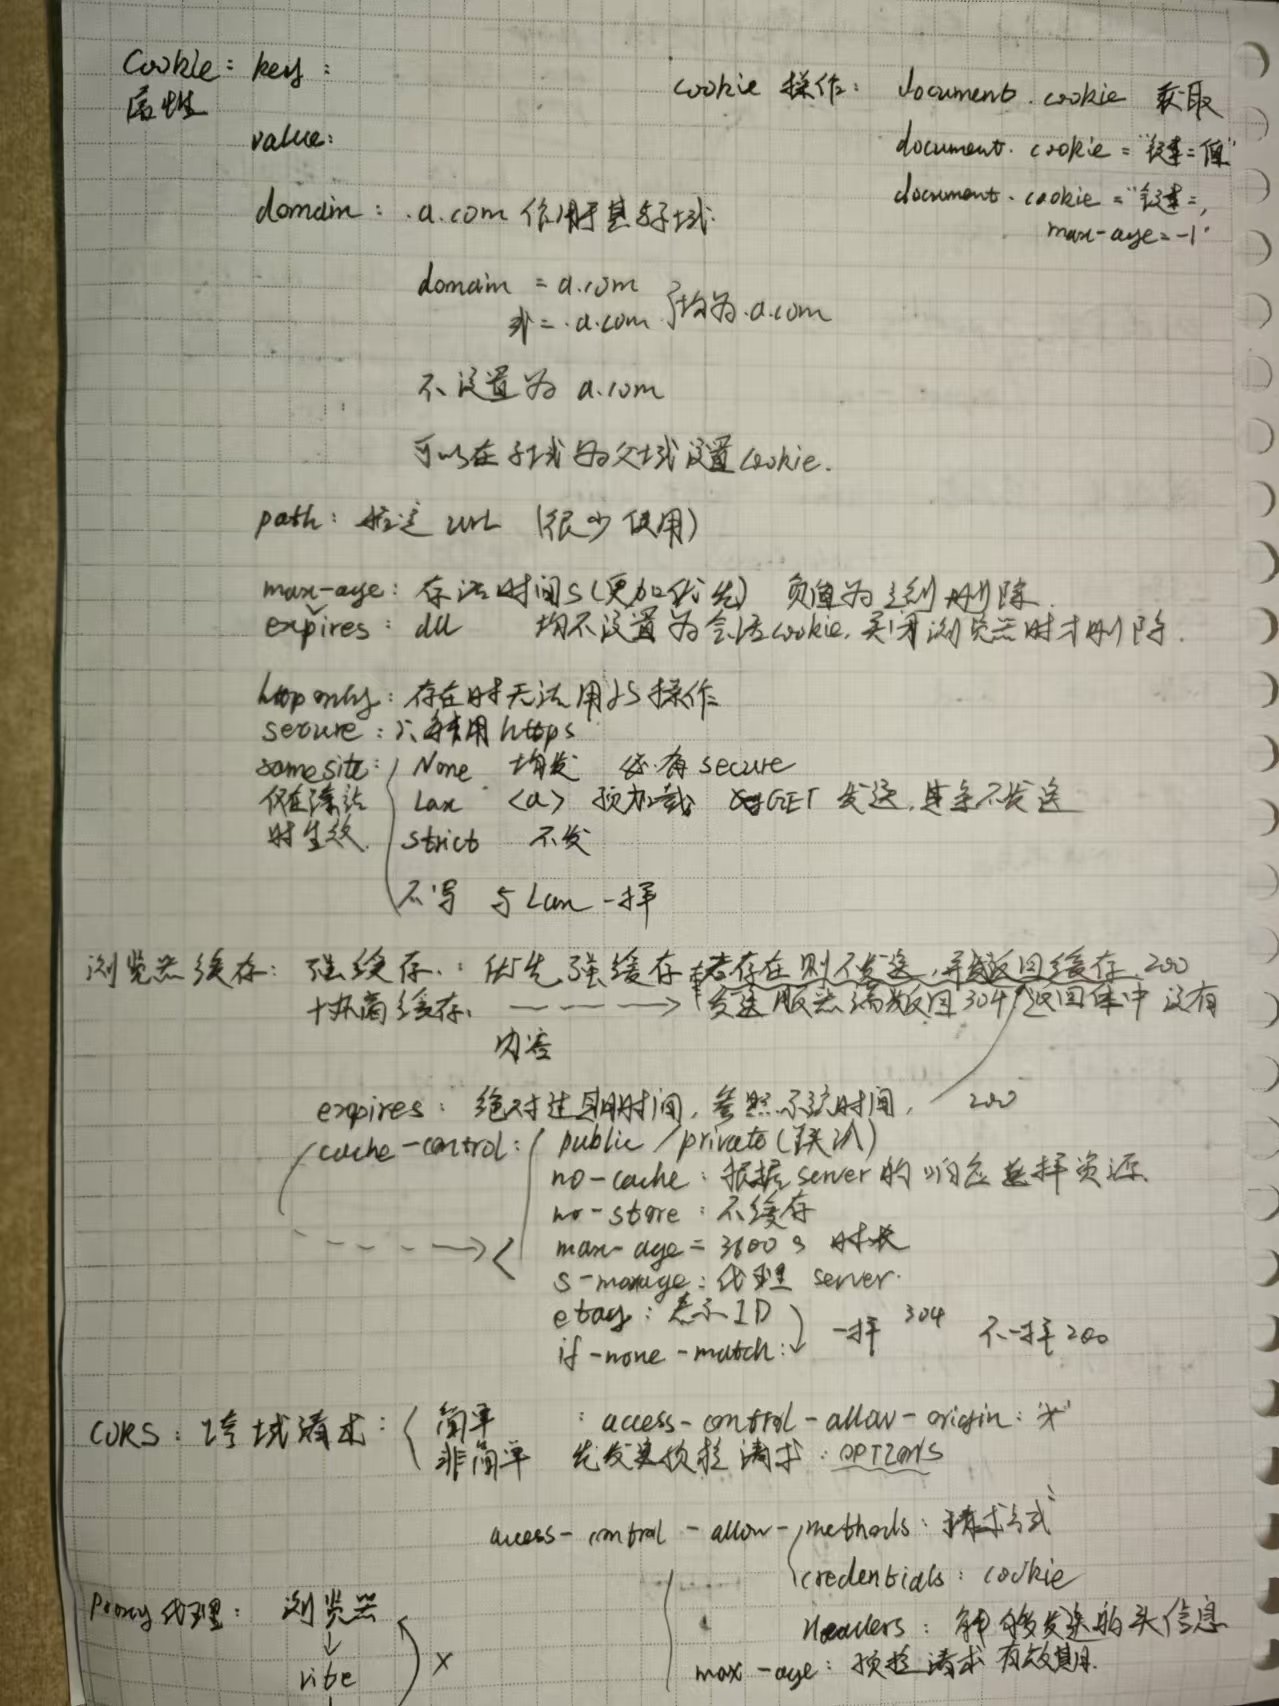 Cookie: key:
属性
value:
cookie 操作: document.cookie 获取
document.cookie = "键=值"
document.cookie = "键=,
max-age=-1"
domain: .a.com 作用于其与子域
domain = a.com
或=.a.com }均为.a.com
不设置为 a.com
可以在子域为父域设置cookie.
path: 指定 url (很少使用)
max-age: 存活时间s(更加优先) 负值为立刻删除.
expires: 均不设置为会话cookie,关闭浏览器时才删除.
http only: 存在时无法用JS操作
secure: 只能用https
samesite: None 均发 必有secure
仅在跨站 Lax <a> 预加载 GET 发送,其余不发送
时生效. strict 不发
不写 与Lax一样
浏览器缓存: 强缓存.: 优先强缓存 若存在则不发送,并返回缓存.200
协商缓存. ----> 发送服务端返回304,返回体中没有
内容
expires: 绝对过期时间,参照系统时间, 200
cache-control: public/private(默认)
no-cache: 根据server的响应选择资源.
no-store: 不缓存
max-age=3600 s 时长
s-maxage: 代理 server.
etag: 表示ID
if-none-match: 一样 304 不一样200
CORS: 跨域请求: 简单 : access-control-allow-origin: '*'
非简单 先发送预检请求: OPTIONS
access-control-allow-methods: 请求方式
credentials: cookie
Headers: 能够发送的头信息
Proxy代理: 浏览器
max-age: 预检请求有效期.
↓
vite X